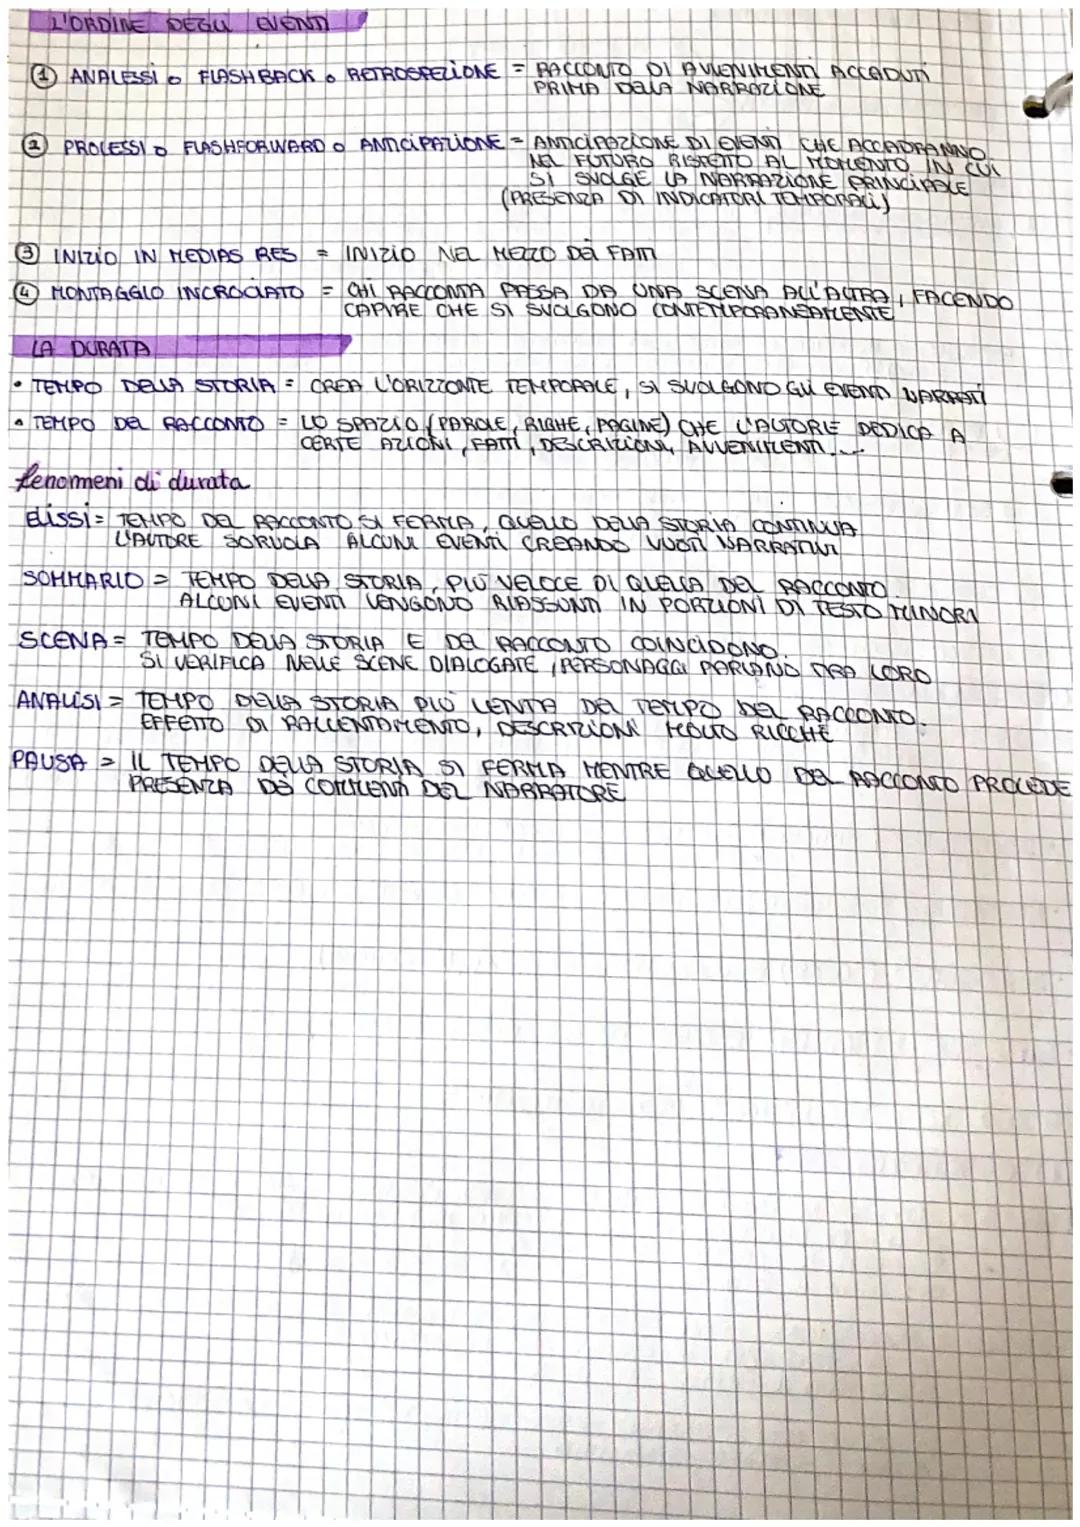 L'ORDINE DEGLI EVENTI
① ANALESSI o FLASHBACK o RETROSPEZIONE = RACCONTO DI AVVENIMENTI ACCADUTI
PRIMA DELLA NARRAZIONE
② PROLESSI o FLASHFORWARD o ANTICIPAZIONE = ANTICIPAZIONE DI EVENTI CHE ACCADRANNO
NEL FUTURO RISPETTO AL MOMENTO IN CUI
SI SVOLGE LA NARRAZIONE PRINCIPALE
(PRESENZA DI INDICATORI TEMPORALI)
③ INIZIO IN MEDIAS RES = INIZIO NEL MEZZO DEI FATTI
④ MONTAGGIO INCROCIATO = CHI RACCONTA PASSA DA UNA SCENA ALL'ALTRA, FACENDO
CAPIRE CHE SI SVOLGONO CONTEMPORANEAMENTE
LA DURATA
• TEMPO DELLA STORIA = CREA L'ORIZZONTE TEMPORALE, SI SVOLGONO GLI EVENTI NARRATI
• TEMPO DEL RACCONTO = LO SPAZIO (PAROLE, RIGHE, PAGINE) CHE L'AUTORE DEDICA A
CERTE AZIONI, FATTI, DESCRIZIONI, AVVENIMENTI...
fenomeni di durata
ELISSI = TEMPO DEL RACCONTO SI FERMA, QUELLO DELLA STORIA CONTINUA
L'AUTORE SORVOLA ALCUNI EVENTI CREANDO VUOTI NARRATIVI
SOMMARIO = TEMPO DELLA STORIA, PIÙ VELOCE DI QUELLA DEL RACCONTO.
ALCUNI EVENTI VENGONO RIASSUNTI IN PORZIONI DI TESTO MINORI
SCENA = TEMPO DELLA STORIA E DEL RACCONTO COINCIDONO.
SI VERIFICA NELLE SCENE DIALOGATE, PERSONAGGI PARLANO TRA LORO
ANALISI = TEMPO DELLA STORIA PIÙ LENTA DEL TEMPO DEL RACCONTO.
EFFETTO DI RALLENTAMENTO, DESCRIZIONI MOLTO RICCHE
PAUSA = IL TEMPO DELLA STORIA SI FERMA MENTRE QUELLO DEL RACCONTO PROCEDE
PRESENZA DEI COMMENTI DEL NARRATORE